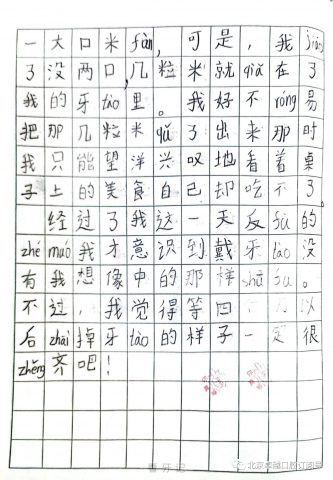 一大口米fàn，可是，我jiáo
了没两口，几粒米就qiǎ在了
我的牙tào里。我好不róng易
把那几粒米qǔ了出来那时
我只能望洋兴叹地看着桌
子上的美食自己却吃不了。
经过了我这一天反fù的
zhé muó我才意识到戴牙tào没
有我想像中的那样shū fu。
不过，我觉得等四个月以
后zhāi掉牙tào的样子一定很
zhěng齐吧！
北京卓越口腔订阅号